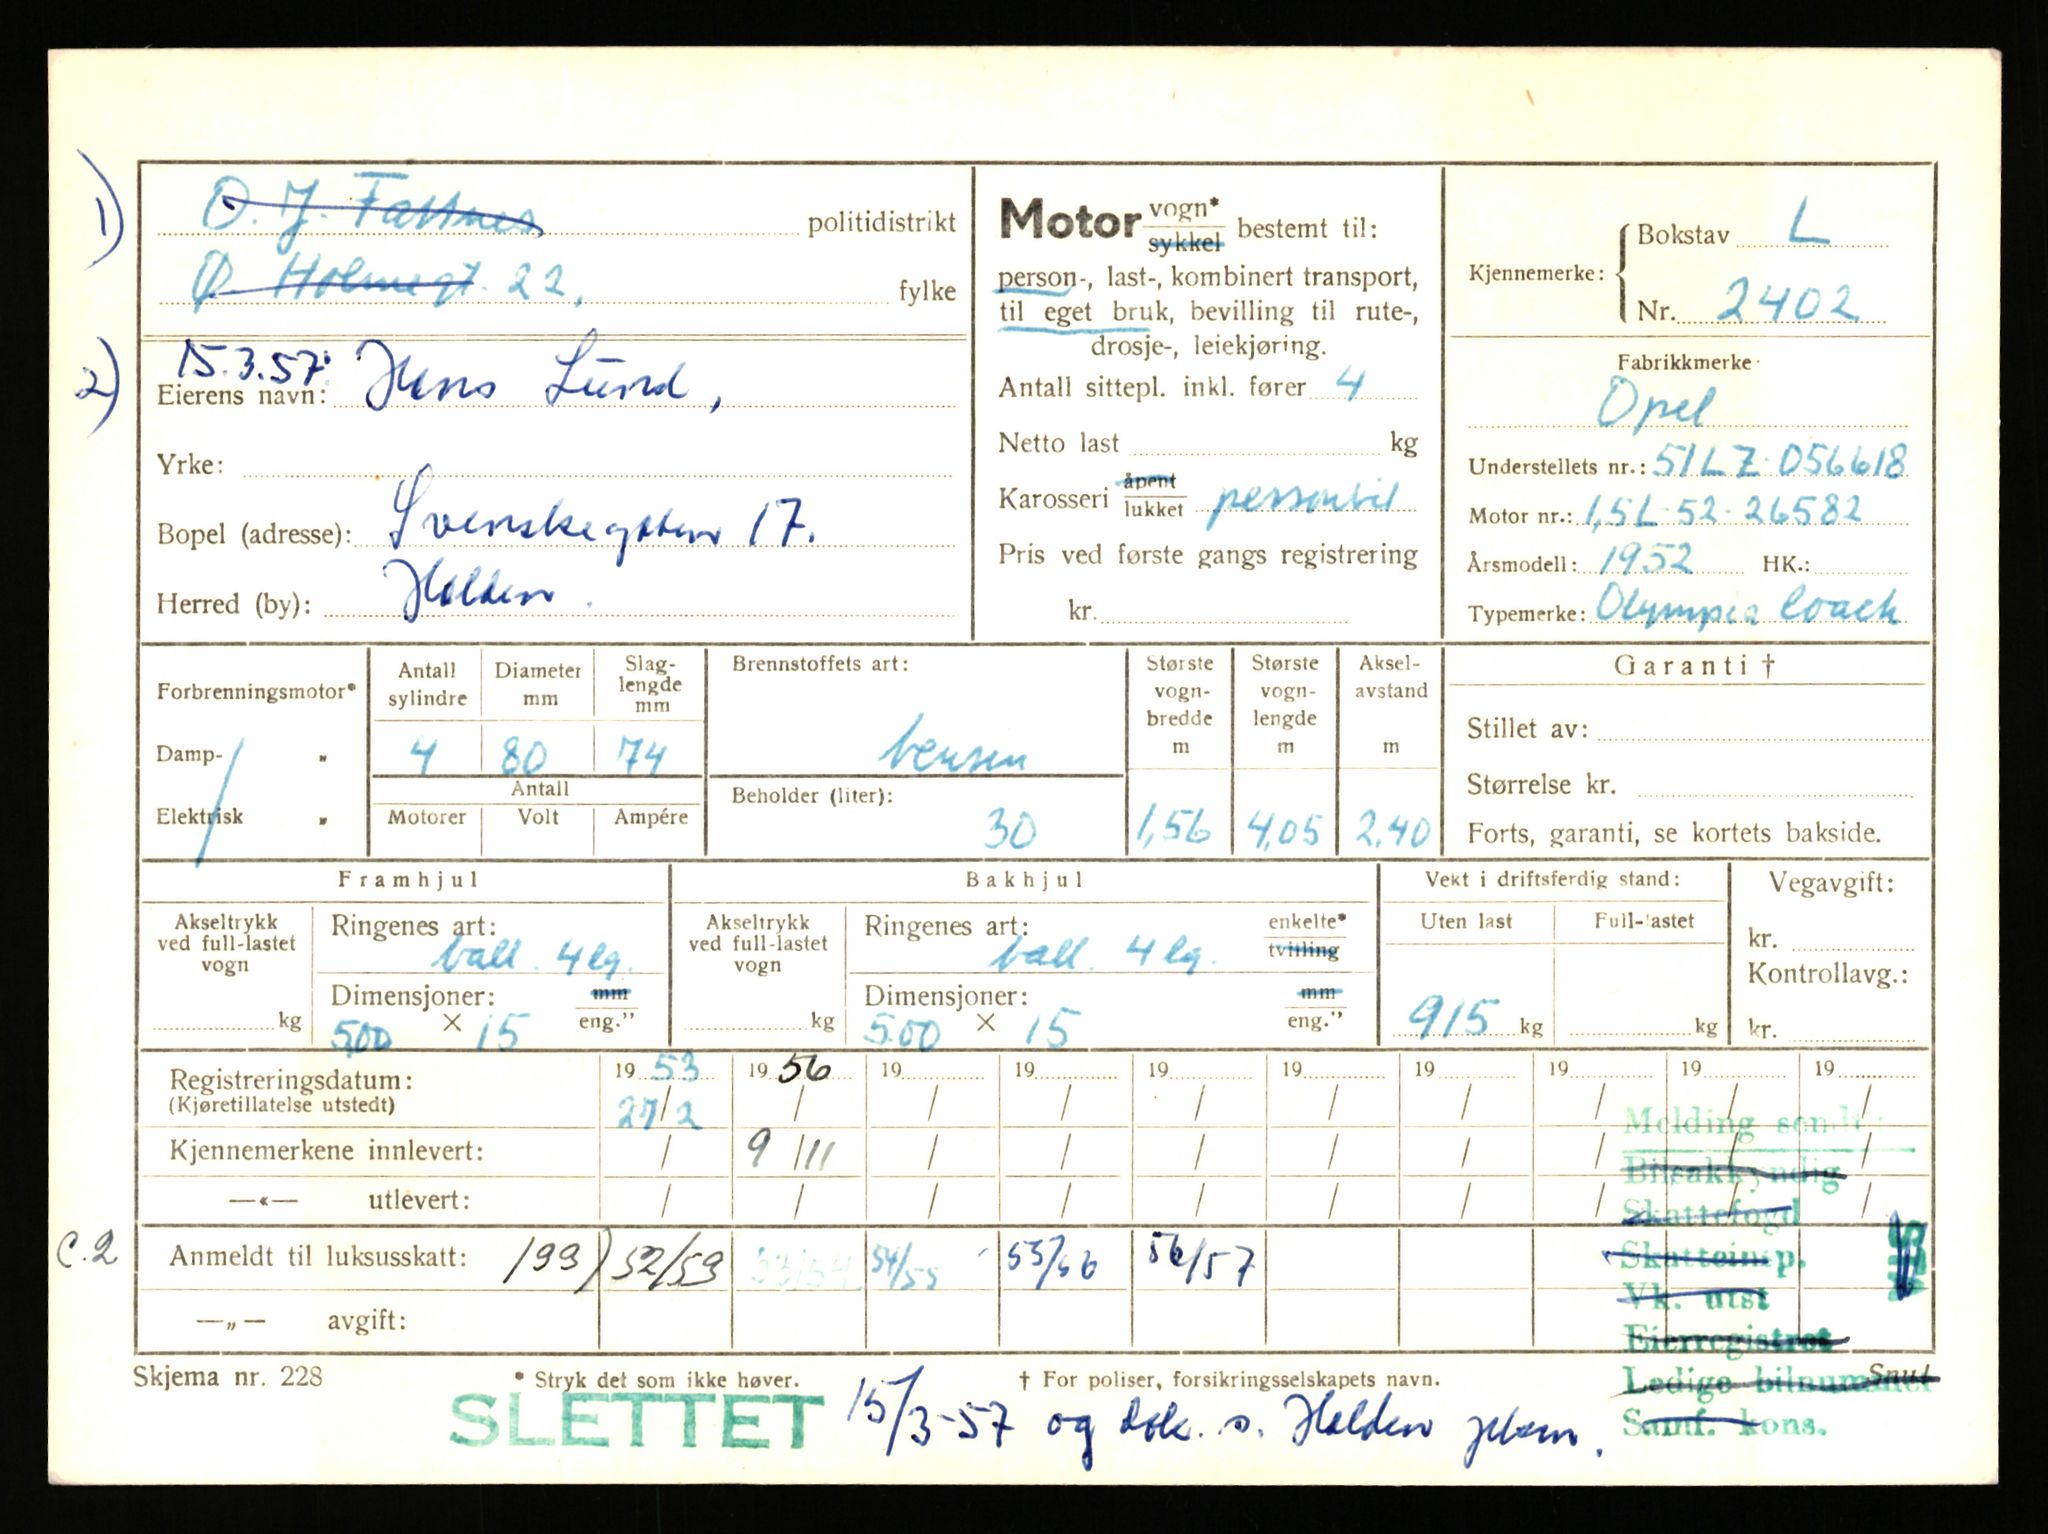 1)
O. J. Fattnes politidistrikt
Ø Holmegt. 22. fylke
2)
15.3.57:
Eierens navn: Hans Lund,
Yrke:
Bopel (adresse): Svenskegaten 17.
Herred (by): Halden.
Motor vogn* bestemt til:
sykkel
person-, last-, kombinert transport,
til eget bruk, bevilling til rute-,
drosje-, leiekjøring.
Antall sittepl. inkl. fører 4
Netto last kg
Karosseri åpent personbil
lukket
Pris ved første gangs registrering
kr.
Kjennemerke: Bokstav L
Nr. 2402
Fabrikkmerke
Opel
Understellets nr.: 51LZ·056618
Motor nr.: 1,5L-52-26582
Årsmodell: 1952 HK.:
Typemerke: Olympia Coach
Forbrenningsmotor*
Damp- „
Elektrisk „
Antall sylindre 4
Diameter mm 80
Slag-lengde mm 74
Antall
Motorer Volt Ampére
Brennstoffets art:
bensin
Beholder (liter):
30
Største vogn-bredde m 1,56
Største vogn-lengde m 4,05
Aksel-avstand m 2,40
Garanti †
Stillet av:
Størrelse kr.
Forts, garanti, se kortets bakside.
Framhjul
Akseltrykk ved full-lastet vogn kg
Ringenes art:
ball. 4 lg.
Dimensjoner: mm
500 × 15 eng."
Bakhjul
Akseltrykk ved full-lastet vogn kg
Ringenes art: enkelte*
ball. 4 lg. tvilling
Dimensjoner: mm
500 × 15 eng."
Vekt i driftsferdig stand:
Uten last Full-lastet
915 kg kg
Vegavgift:
kr.
Kontrollavg.:
kr.
Registreringsdatum: 1953 1956 19 19 19 19 19 19 19 19
(Kjøretillatelse utstedt) 27/2 / / / / / / / / /
Kjennemerkene innlevert: / 9/11 / / / / / / / /
—«— utlevert: / / / / / / / / / /
C.2 Anmeldt til luksusskatt: 199) 52/53 53/54 54/55 55/56 56/57
—„— avgift:
Melding sendt:
Bilsakkyndig
Skattefogd
Skatteinsp.
Vk. utst
Eierregistret
Ledige bilnummer
Snut
Samf. kons.
Skjema nr. 228 * Stryk det som ikke høver. † For poliser, forsikringsselskapets navn.
SLETTET 15/3-57 og dok. s. Halden